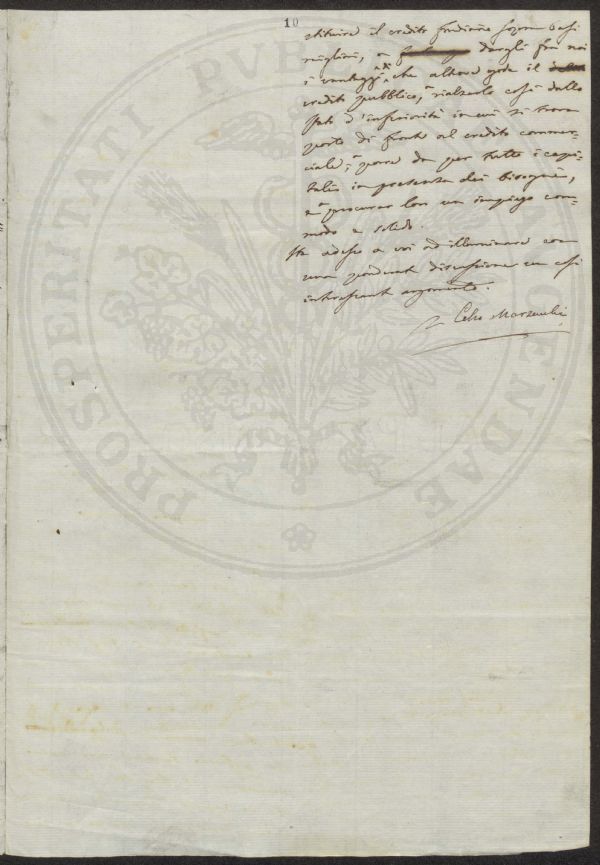 10
stituire il credito fondiario sopra basi
migliori, a dargli fra noi
i vantaggi, di che altrove gode il
credito pubblico, a rialzarlo così dallo
stato d'inferiorità in cui si trova
posto di fronte al credito commer=
ciale, a porre da per tutto i capi=
talisti in presenza dei bisogni,
e a procurar loro un impiego com=
modo e solido.
Sta adesso a voi ad illuminare con
una prudente discussione un così
interessante argomento.
Celso Marzucchi
PROSPERITATI PVBLICAE AVGENDAE